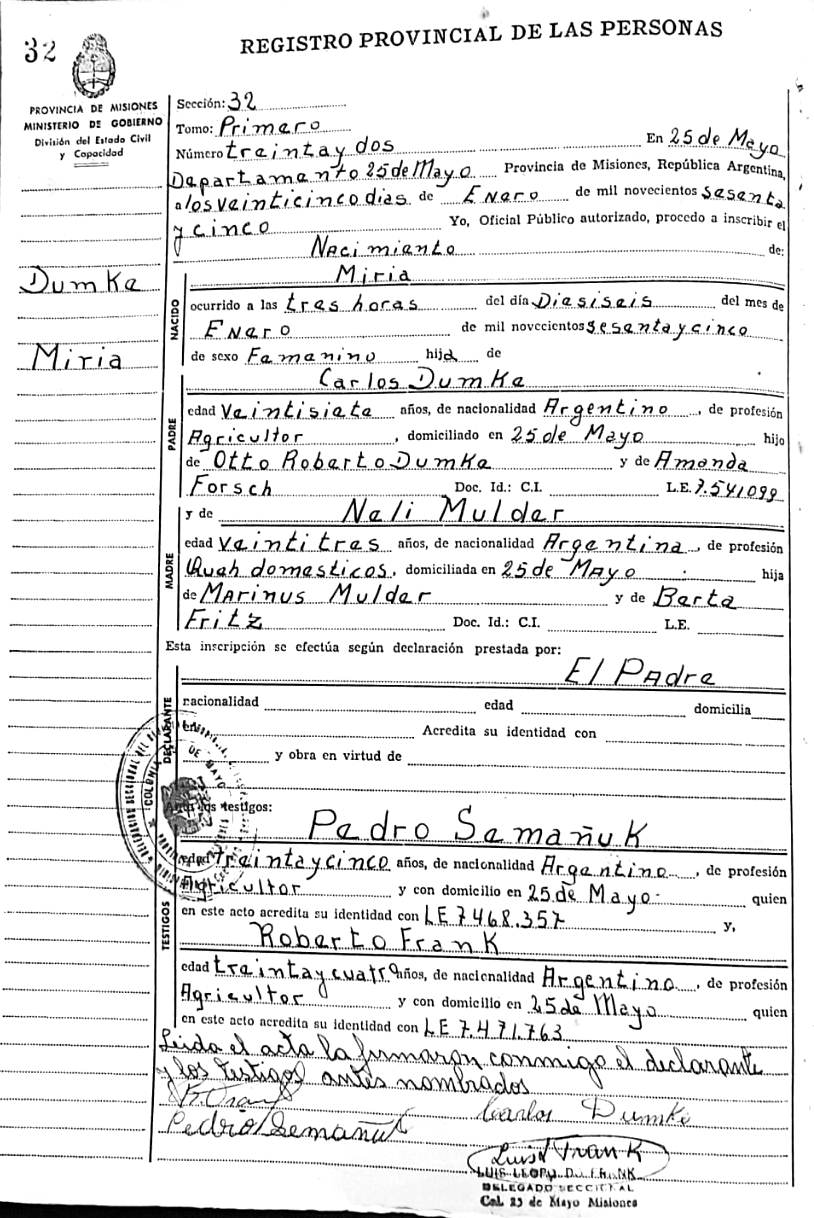 32
REGISTRO PROVINCIAL DE LAS PERSONAS
PROVINCIA DE MISIONES
MINISTERIO DE GOBIERNO
División del Estado Civil
y Capacidad
Dumke
Miria
Sección: 32
Tomo: Primero
Número treinta y dos En 25 de Mayo
Departamento 25 de Mayo Provincia de Misiones, República Argentina,
a los veinticinco dias de Enero de mil novecientos Sesenta
y cinco Yo, Oficial Público autorizado, procedo a inscribir el
Nacimiento de:
Miria
NACIDO
ocurrido a las tres horas del día Diesiseis del mes de
Enero de mil novecientos sesenta y cinco
de sexo Famanino hija de
Carlos Dumke
PADRE
edad Veintisiete años, de nacionalidad Argentino, de profesión
Agricultor, domiciliado en 25 de Mayo hijo
de Otto Roberto Dumke y de Amanda
Forsch Doc. Id.: C.I. L.E. 7.541099
y de Neli Mulder
MADRE
edad Veintitres años, de nacionalidad Argentina, de profesión
Queh domesticos, domiciliada en 25 de Mayo hija
de Marinus Mulder y de Berta
Fritz Doc. Id.: C.I. L.E.
Esta inscripción se efectúa según declaración prestada por:
El Padre
DECLARANTE
nacionalidad edad domicilia
Acredita su identidad con
y obra en virtud de
COLONIA DE MAYO
Ante los testigos:
Pedro Semañuk
TESTIGOS
edad treinta y cinco años, de nacionalidad Argentino, de profesión
Agricultor y con domicilio en 25 de Mayo- quien
en este acto acredita su identidad con LE 7468.357 y,
Roberto Frank
edad treinta y cuatro años, de nacionalidad Argentino, de profesión
Agricultor y con domicilio en 25 de Mayo quien
en este acto acredita su identidad con LE 7.471.763
Leida el acta la firmaron conmigo el declarante
y los testigos antes nombrados
Carlos Dumke
Pedro Semañuk
Luis Frank
LUIS LEOPO D. FRANK
DELEGADO SECCIONAL
Col. 25 de Mayo Misiones